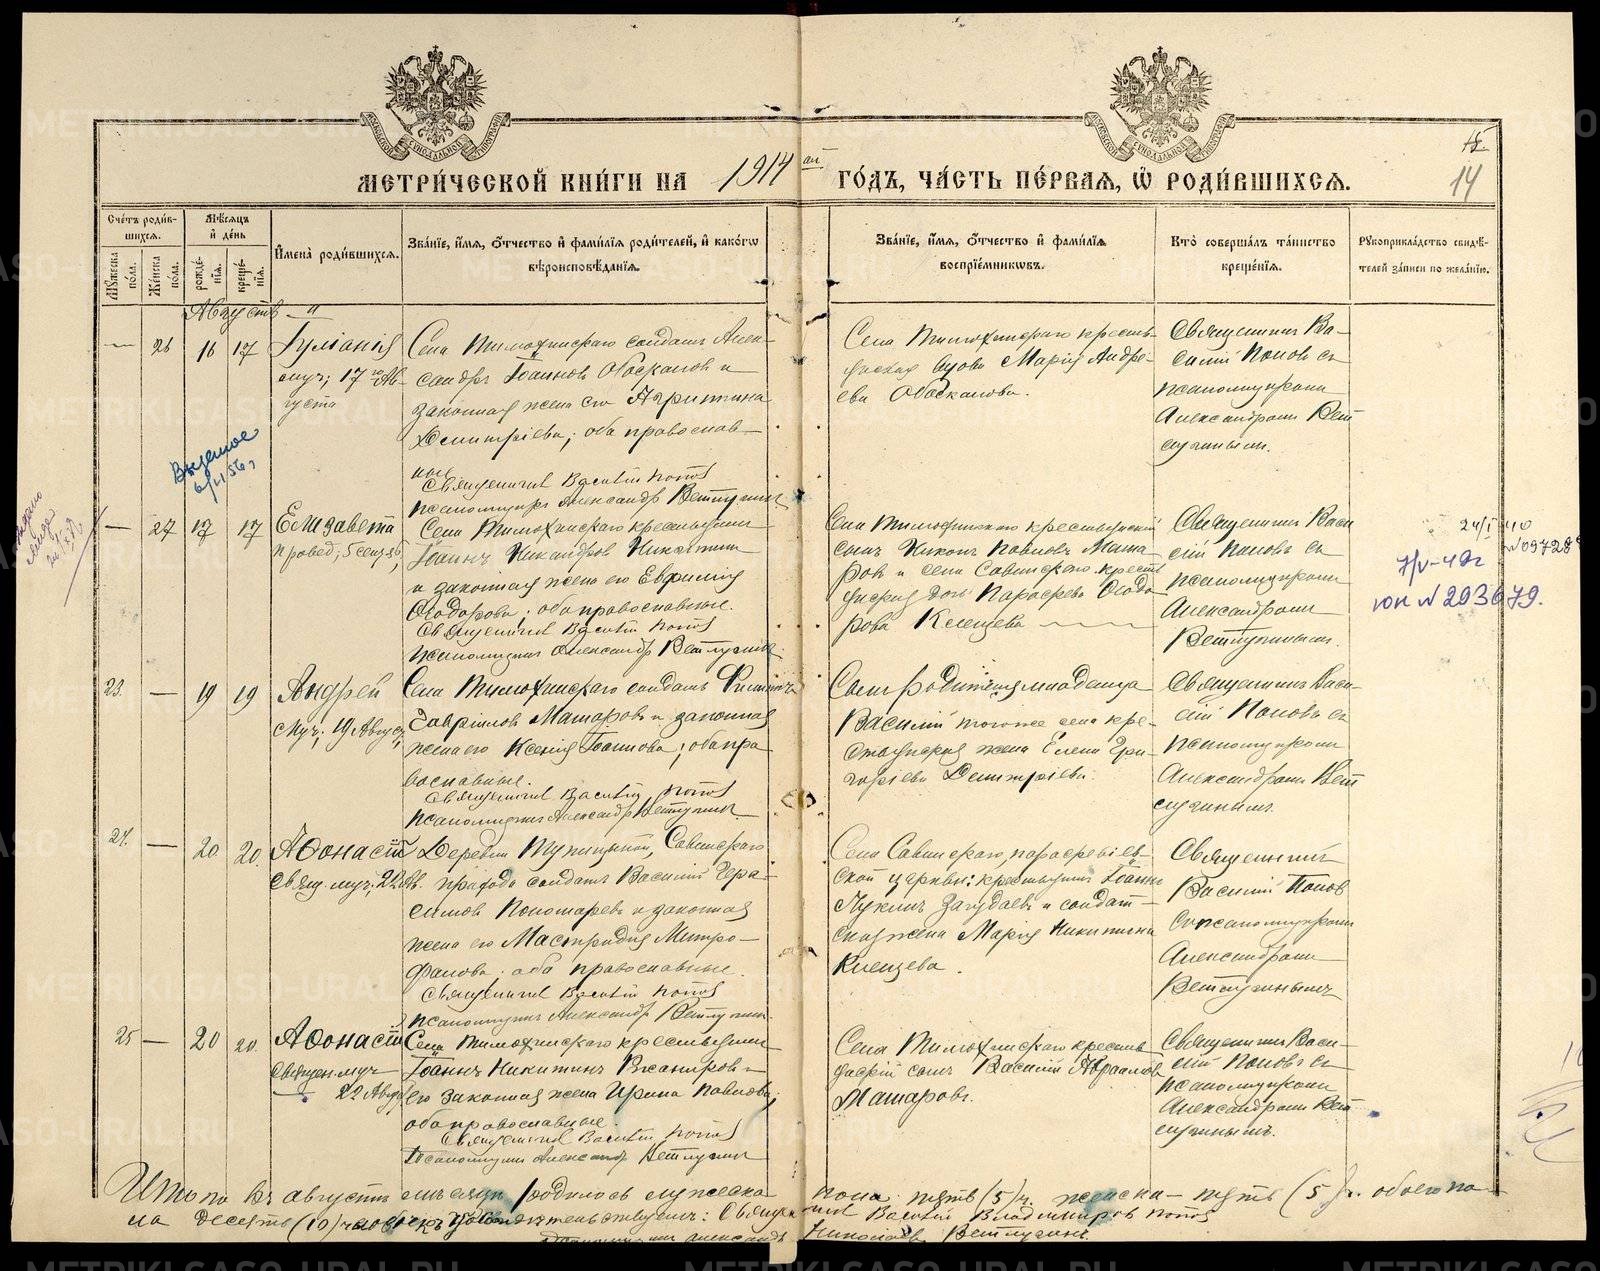 МЕТРИЧЕСКОЙ КНИГИ НА 1914 ый ГОДЪ, ЧАСТЬ ПЕРВАЯ, Ѡ РОДИВШИХСЯ.
15
14
Счетъ родив-
шихся.
Мѣсяцъ
и день
Мужеска пола.
Женска пола.
рожде-
нія.
креще-
нія.
Имена родившихся.
Званіе, имя, отчество и фамилія родителей, и какогѡ
вѣроисповѣданія.
Званіе, имя, отчество и фамилія
воспріемниковъ.
Кто совершалъ таинство
крещенія.
Рукоприкладство свидѣ-
телей записи по желанію.
Августъ
— 26 16 17
Іуліанія
муч; 17 го Ав-
густа
Села Тимохинскаго солдатъ Алек-
сандръ Іоанновъ и
законная жена его Агрипина
Димитріева; оба православ-
ные
Священникъ Василій Поповъ
Псаломщикъ Александръ Ветлугинъ
Села Тимохинскаго кресть-
янская вдова Марія Андре-
ева
Священникъ Ва-
силій Поповъ съ
псаломщикомъ
Александромъ Вет-
лугинымъ.
— 27 17 17
Елизавета
правед; 5 сент;
Села Тимохинскаго крестьянинъ
Іоаннъ Никандровъ Никитинъ
и законная жена его Евфимія
Ѳеодорова; оба православные.
Священникъ Василій Поповъ
Псаломщикъ Александръ Ветлугинъ
Села Тимохинскаго крестьянскій
сынъ Никонъ Павловъ Маша-
ровъ и села Савинскаго крест-
янская дочь Параскева Ѳеодо-
рова Клещева
Священникъ Васи-
лій Поповъ съ
псаломщикомъ
Александромъ
Ветлугинымъ.
7/V-42г
юн № 203679.
23. — 19 19
Андрей
муч; 19 Август;
Села Тимохинскаго солдатъ Филиппъ
Гавріиловъ Машаровъ и законная
жена его Ксенія Іоаннова; оба пра-
вославные.
Священникъ Василій Поповъ
Псаломщикъ Александръ Ветлугинъ
Василій тогоже села кре-
стьянская жена Елена Гри-
горіева Димитріева.
Священникъ Васи-
лій Поповъ съ
псаломщикомъ
Александромъ Вет-
лугинымъ.
24. — 20. 20.
Аѳонасій
Свящ. муч; 22 Ав.
Деревни Тупицыной, Савинскаго
прихода солдатъ Василій Гера-
симовъ Пономаревъ и законная
жена его Мастридія Митро-
фанова; оба православные.
Священникъ Василій Поповъ
Псаломщикъ Александръ Ветлугинъ
Села Савинскаго, параскевіев-
ской церкви: крестьянинъ Іоаннъ
Лукинъ Загудаевъ и солдат-
ская жена Марія Никитина
Клещева.
Священникъ
Василій Поповъ
съ псаломщикомъ
Александромъ
Ветлугинымъ
25 — 20 20.
Аѳонасій
Священ. муч
22 Авгу
Села Тимохинскаго крестьянинъ
Іоаннъ Никитинъ и
его законная жена Ирина Павлова;
оба православные.
Священникъ Василій Поповъ
Псаломщикъ Александръ Ветлугинъ
Села Тимохинскаго кресть-
янскій сынъ Василій Авраамовъ
Машаровъ.
Священникъ Васи-
лій Поповъ съ
псаломщикомъ
Александромъ Вет-
лугинымъ.
Итого въ августѣ мѣсяцѣ родилось мужеска пола пять (5), женска — пять (5), обоего по-
ла десять (10) человѣкъ. Священникъ Василій Владиміровъ Поповъ
Псаломщикъ Александръ Николаевъ Ветлугинъ.
METRIKI.GASO-URAL.RU